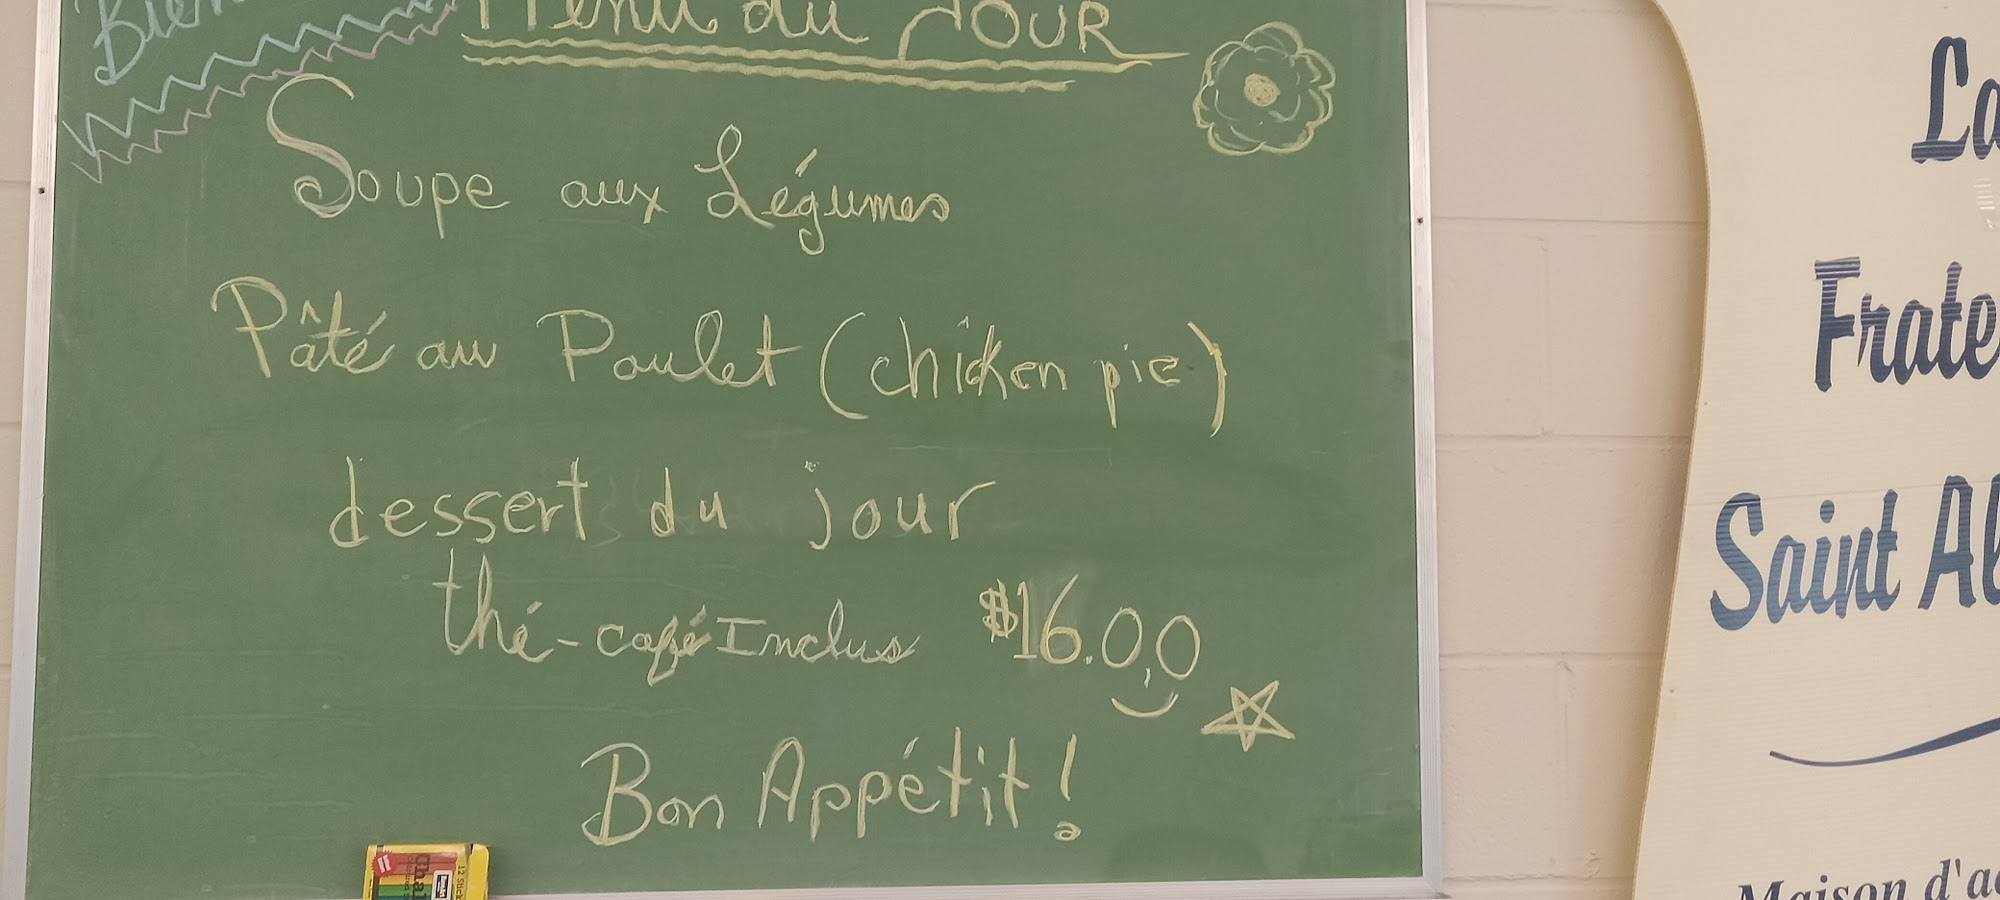 Bien
Menu du JOUR
Soupe aux Légumes
Pâté au Poulet (chicken pie)
dessert du jour
thé-café Inclus $16.00
Bon Appétit!
La
Frate
Saint Al
Maison d'ac
12 Stick